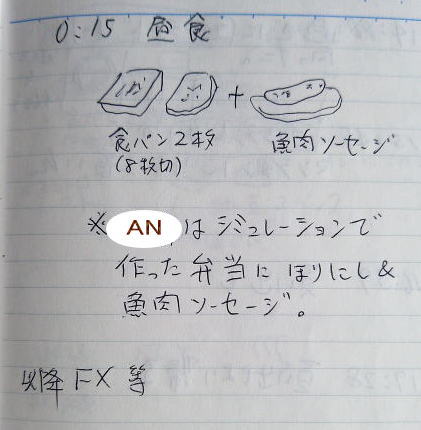 0:15 昼食
+
食パン2枚 魚肉ソーセージ
(8枚切)
※ AN はシミュレーションで
作った弁当にほりにし&
魚肉ソーセージ。
以降FX等